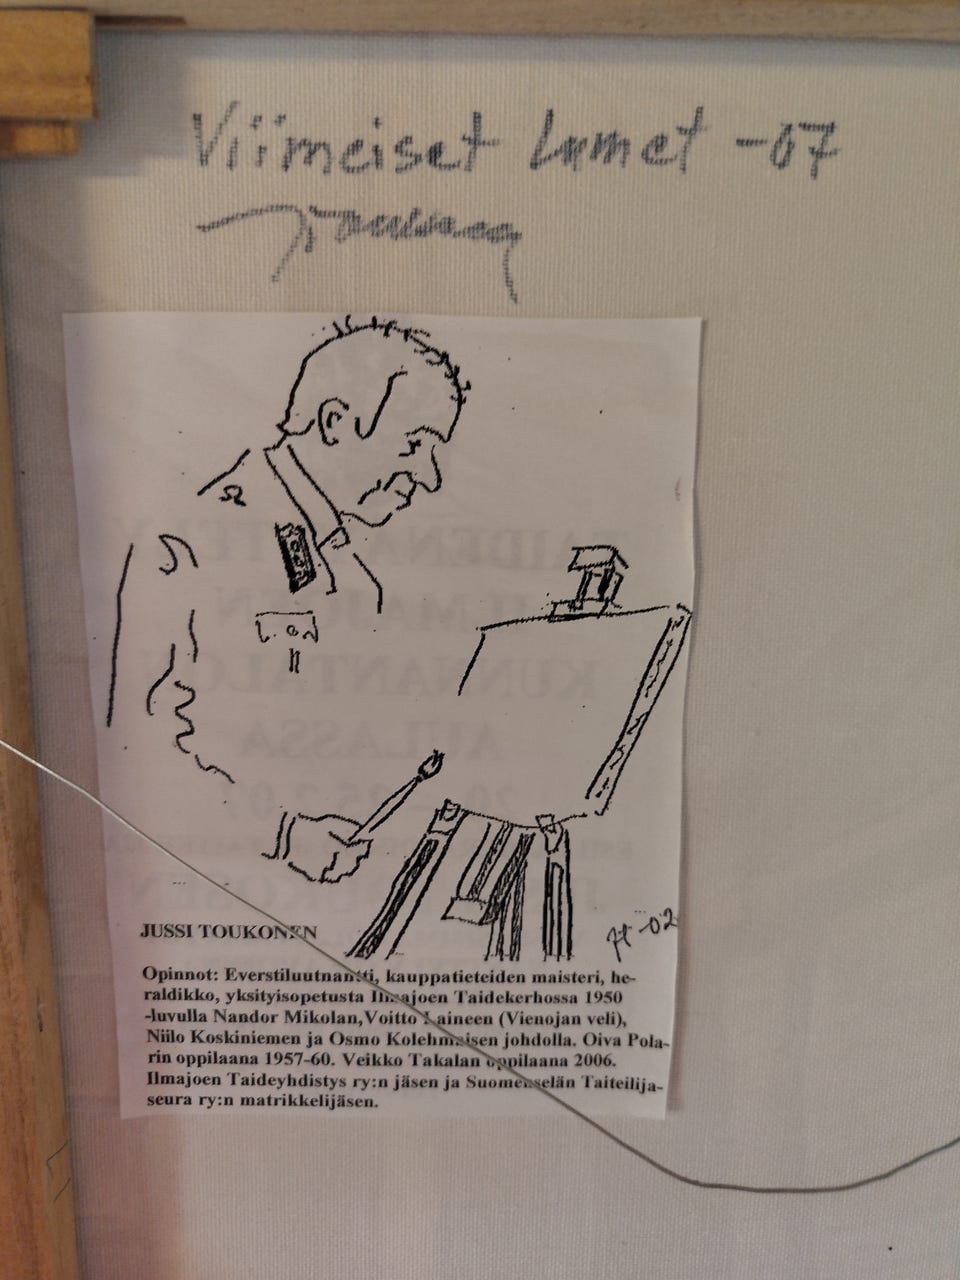 Viimeiset Lumet -07
JUSSI TOUKONEN
-02
Opinnot: Everstiluutnantti, kauppatieteiden maisteri, he-
raldikko, yksityisopetusta Ilmajoen Taidekerhossa 1950
-luvulla Nandor Mikolan,Voitto Laineen (Vienojan veli),
Niilo Koskiniemen ja Osmo Kolehmaisen johdolla. Oiva Pola-
rin oppilaana 1957-60. Veikko Takalan oppilaana 2006.
Ilmajoen Taideyhdistys ry:n jäsen ja Suomenselän Taiteilija-
seura ry:n matrikkelijäsen.